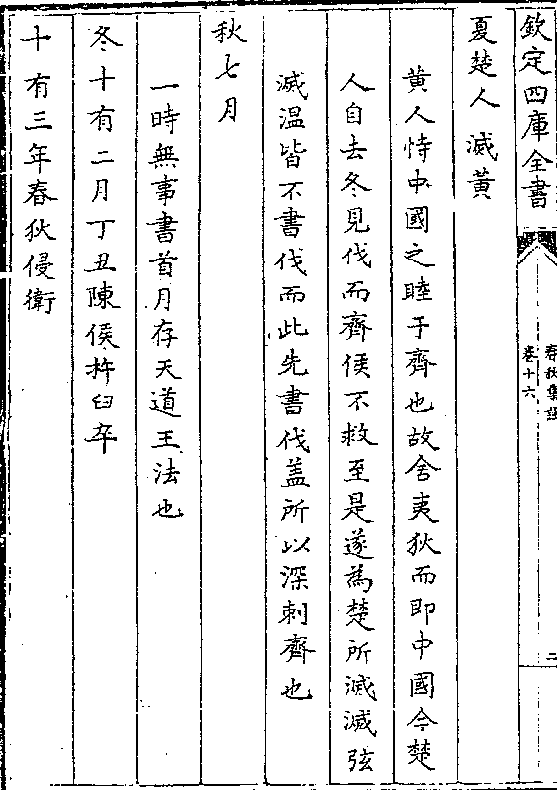 欽定四庫全書
春秋集註
卷十六
二
夏楚人滅黄
黄人恃中國之睦于齊也故舍夷狄而即中國今楚
人自去冬見伐而齊侯不救至是遂為楚所滅滅弦
滅温皆不書伐而此先書伐盖所以深刺齊也
秋七月
一時無事書首月存天道王法也
冬十有二月丁丑陳侯杵臼卒
十有三年春狄侵衛